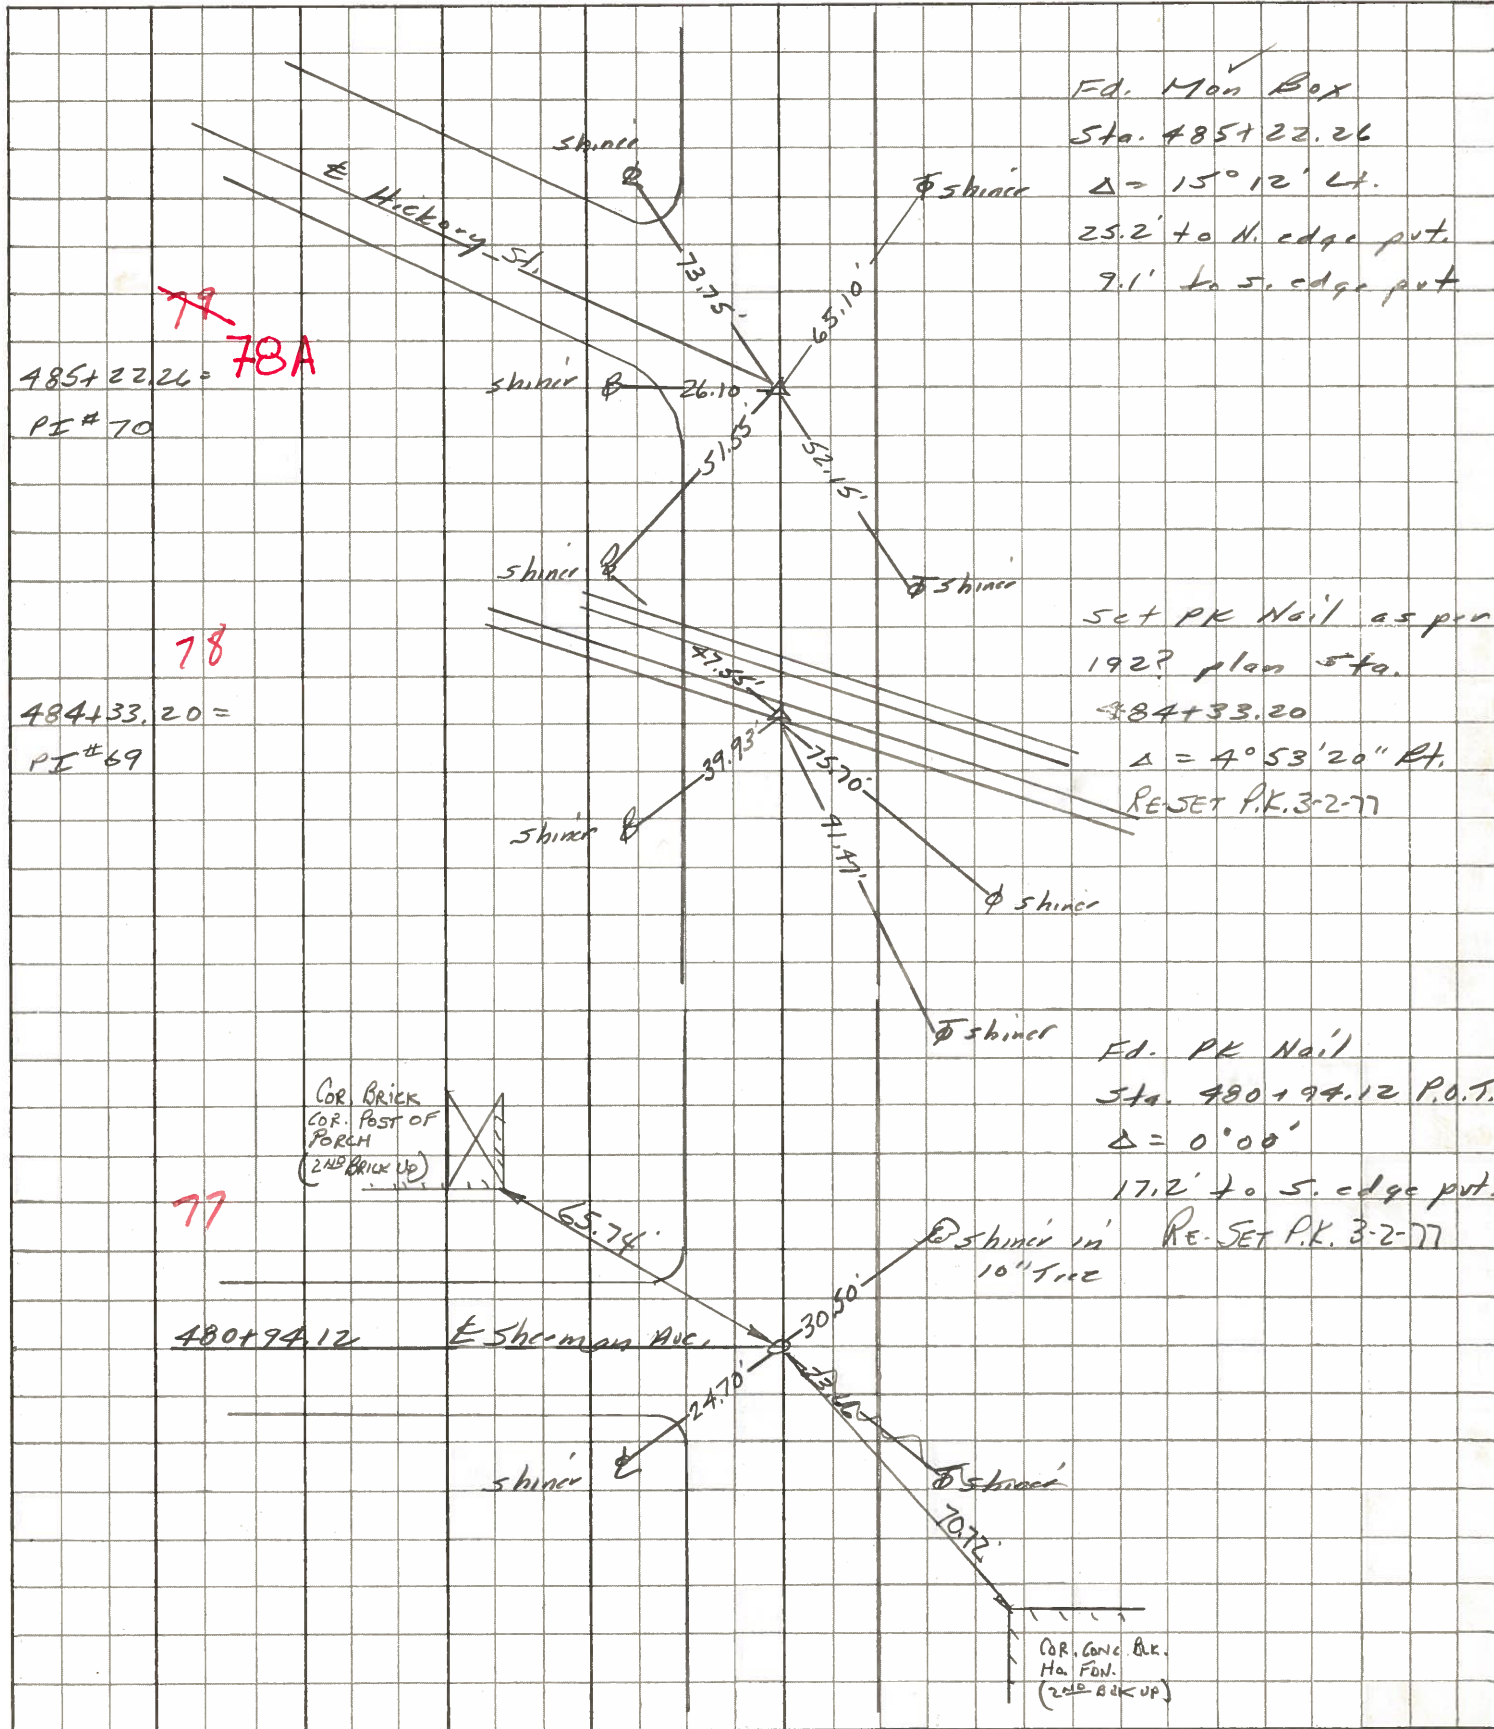 Fd. Mon Box
Sta. 485+22.26
Δ = 15°12' Lt.
25.2' to N. edge pvt.
9.1' to S. edge pvt
shiner
shiner
℄ Hickory St.
73.75'
65.10'
79
78A
485+22.26 =
PI # 70
shiner
26.10
51.55'
52.15'
shiner
shiner
Set PK Nail as per
192? plan Sta.
484+33.20
Δ = 4°53'20" Rt.
RE-SET P.K. 3-2-77
78
484+33.20 =
PI # 69
47.55'
39.93'
75.70'
41.47'
shiner
shiner
shiner
Fd. PK Nail
Sta. 480+94.12 P.O.T.
Δ = 0°00'
17.2' to S. edge pvt.
RE-SET P.K. 3-2-77
COR. BRICK
COR. POST OF
PORCH
(2ND BRICK UP)
77
65.74'
shiner in
10" Tree
30.50'
480+94.12
℄ Sherman Ave.
24.70'
23.66
shiner
shiner
70.72'
COR. CONC. BLK.
HO. FDN.
(2ND BLK UP)